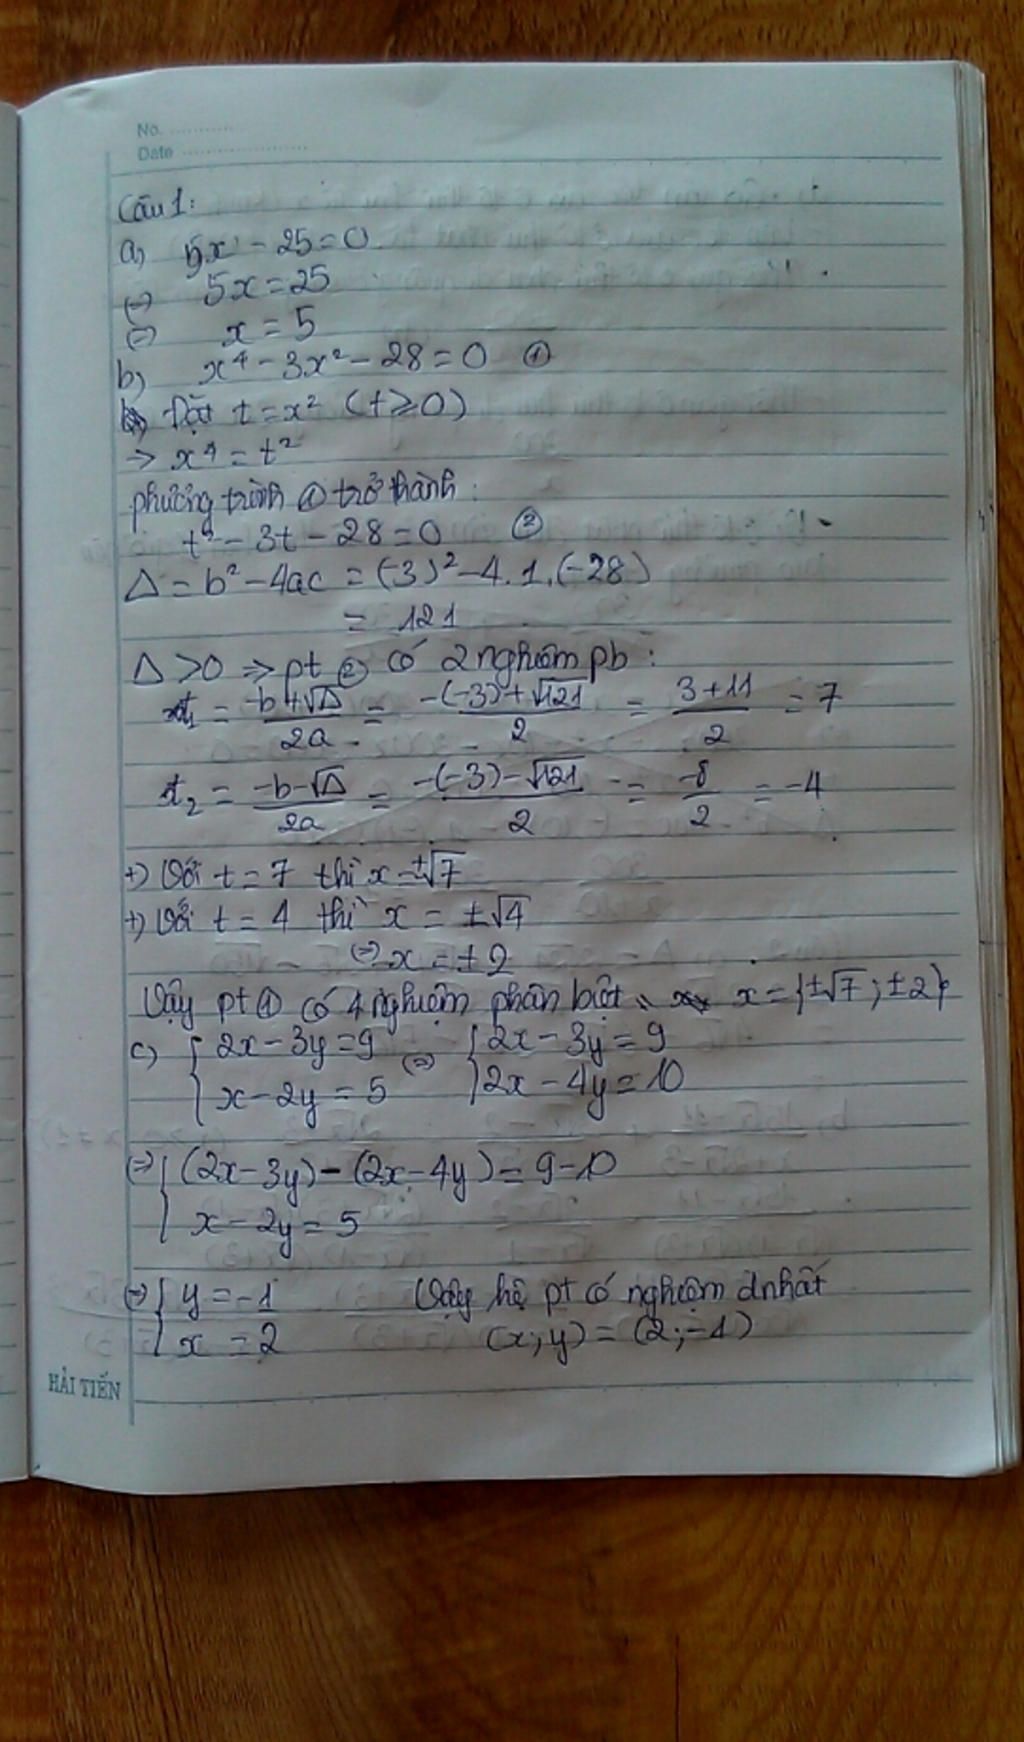 No. ............
Date .....................
Câu 1:
a, 5x - 25 = 0
(=) 5x = 25
(=) x = 5
b, x⁴ - 3x² - 28 = 0 ①
Đặt t = x² (t ≥ 0)
-> x⁴ = t²
phương trình ① trở thành:
t² - 3t - 28 = 0 ②
Δ = b² - 4ac = (-3)² - 4.1.(-28)
= 121
Δ > 0 => pt ② có 2 nghiệm pb:
t₁ = (-b + √Δ)/2a = (-(-3) + √121)/2 = (3 + 11)/2 = 7
t₂ = (-b - √Δ)/2a = (-(-3) - √121)/2 = -8/2 = -4
+) Với t = 7 thì x = ±√7
+) Với t = 4 thì x = ±√4
(=) x = ±2
Vậy pt ① có 4 nghiệm phân biệt x = {±√7; ±2}
c) { 2x - 3y = 9 (=) { 2x - 3y = 9
x - 2y = 5 2x - 4y = 10
(=) { (2x - 3y) - (2x - 4y) = 9 - 10
x - 2y = 5
(=) { y = -1 Vậy hệ pt có nghiệm dnhất
x = 2 (x; y) = (2; -1)
HẢI TIẾN